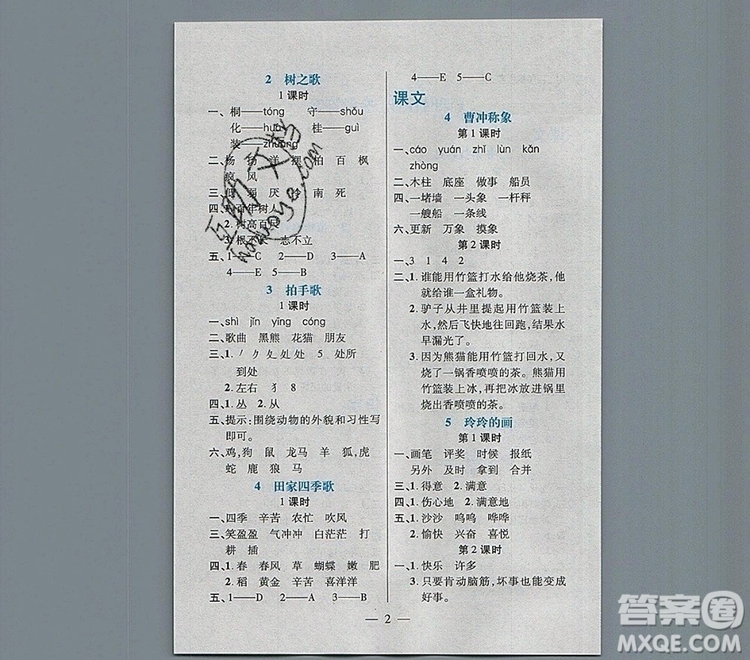 2 树之歌
1课时
一、桐——tóng 守——shǒu
化——huà 桂——guì
装——zhuāng
二、杨 洋 桐 柏 百 枫
疯 风
三、低 弱 厌 冷 南 死
四、1.百年树人
2.树高百尺
3.根 志不立
五、1——C 2——D 3——A
4——E 5——B
3 拍手歌
1课时
一、shì jǐn yīng cóng
二、歌曲 黑熊 花猫 朋友
三、1. 处 处 5 处所
到处
2.左右 犭 8
四、1.丛 2.从
五、提示:围绕动物的外貌和习性写
即可。
六、鸡,狗 鼠 龙马 羊 狐,虎
蛇 鹿 狼 马
4 田家四季歌
1课时
一、四季 辛苦 农忙 吹风
三、笑盈盈 气冲冲 白茫茫 打
耕 插
四、1.春 春风 草 蝴蝶 嫩 肥
2.稻 黄金 辛苦 喜洋洋
五、1——D 2——B 3——A
4——E 5——C
课文
4 曹冲称象
第1课时
一、cáo yuán zhǐ lùn kǎn
zhòng
二、木柱 底座 做事 船员
四、一堵墙 一头象 一杆秤
一艘船 一条线
六、更新 万象 摸象
第2课时
一、3 1 4 2
二、1.谁能用竹篮打水给他烧茶,他
就送给谁一盒礼物。
2.驴子从井里提起用竹篮装上
水,然后飞快地往回跑。结果水
早漏光了。
3.因为熊猫能用竹篮打回水,又
烧了一锅香喷喷的茶。熊猫用
竹篮装上冰,再把冰放进锅里
烧成香喷喷的茶。
5 玲玲的画
第1课时
一、画笔 评奖 时候 报纸
另外 及时 拿到 合并
三、1.得意 2.满意
四、1.伤心地 2.满意地
五、1.沙沙 呜呜 哗哗
2.愉快 兴奋 喜悦
第2课时
一、1.快乐 许多
3.只要肯动脑筋,坏事也能变成
好事。
— 2 —
答案圈
MXQE.COM